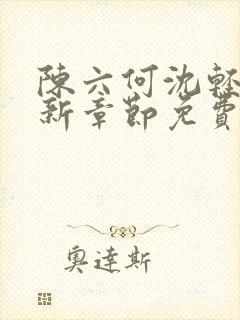 陳六何沈輕
新章節免費
奧達斯